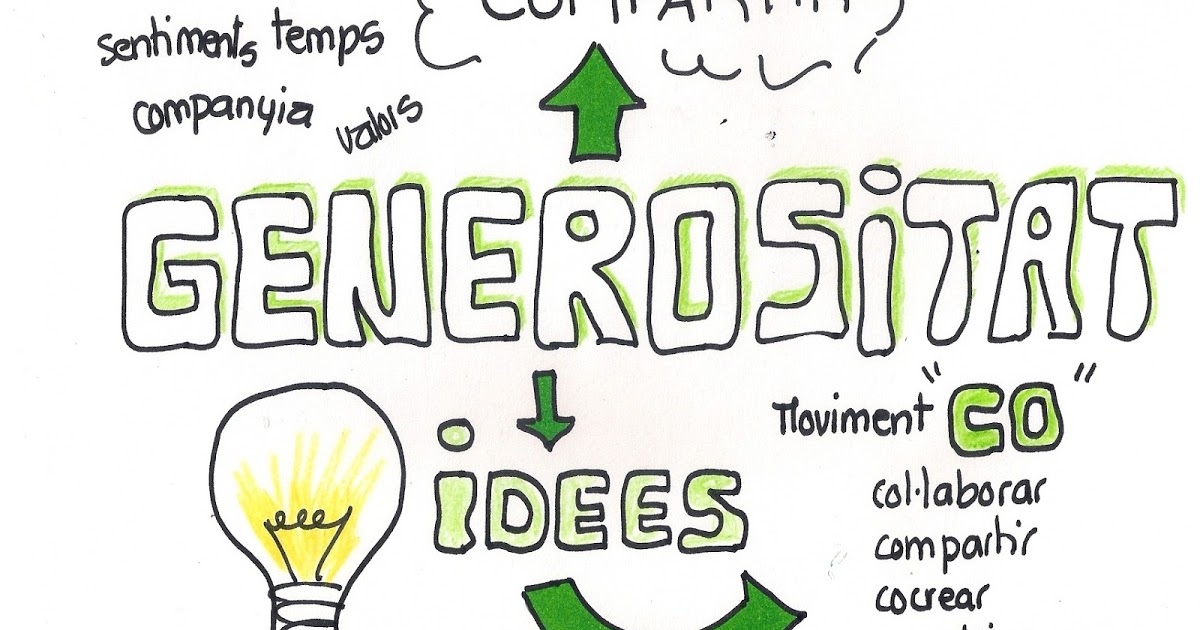 COMPARTIR
sentiments temps
companyia
valors
GENEROSiTAT
iDEES
Moviment "CO"
col·laborar
compartir
cocrear